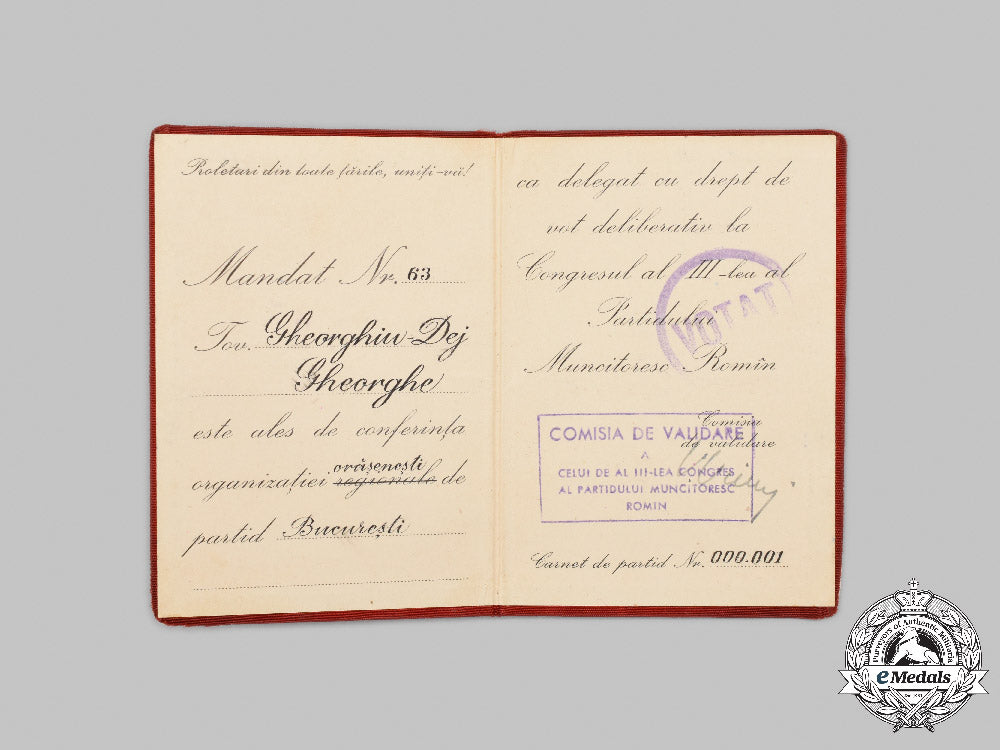 Proletari din toate țările, uniți-vă!
Mandat Nr. 63
Tov. Gheorghiu-Dej
Gheorghe
este ales de conferința
orășenești
organizației regionale de
partid București
ca delegat cu drept de
vot deliberativ la
Congresul al III-lea al
Partidului
Muncitoresc Romîn
VOTAT
Comisia
de validare
COMISIA DE VALIDARE
A
CELUI DE AL III-LEA CONGRES
AL PARTIDULUI MUNCITORESC
ROMIN
Carnet de partid Nr. 000.001
Purveyors of Authentic Militaria
eMedals